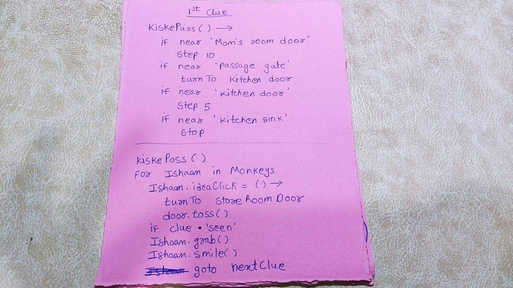 1st Clue
KiskePass ( ) →
if near 'Mom's room door'
Step 10
if near 'Passage gate'
turnTo Kitchen door
if near 'Kitchen door'
Step 5
if near 'Kitchen sink'
Stop
KiskePass ( )
For Ishaan in Monkeys
Ishaan.ideaClick = ( ) →
turnTo StoreRoom Door
door.toss( )
if clue = 'seen'
Ishaan.grab( )
Ishaan.smile( )
goto nextClue